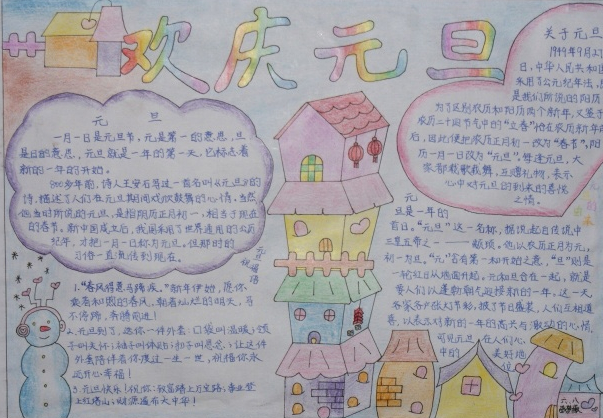 欢庆元旦
元 旦
一月一日是元旦节,元是第一的意思,旦
是日的意思,元旦就是一年的第一天,它标志着
新的一年的开始。
900多年前,诗人王安石写过一首名叫《元旦》的
诗,描述了人们在元旦期间欢欣鼓舞的心情。当然
的春节。新中国成立后,我国采用了世界通用的公历
纪年,才把一月一日称为元旦。但那时的
习俗一直流传到现在。
元旦祝福语
1."春风得意马蹄疾。"新年伊始,愿你
乘着和煦的春风,朝着灿烂的明天,马
不停蹄,奔腾前进!
2.元旦到了,送你一件外套:口袋叫温暖;领
子叫关怀;袖子叫体贴;扣子叫思念;让这件
外套陪伴着你渡过一生一世,祝福你永
远开心幸福!
3.元旦快乐!祝你:致富踏上万宝路,事业登
上红塔山;财源遍布大中华!
关于元旦
1949年9月27
日,中华人民共和国
采用了公元纪年法,
是我们所说的阳历
为了区别农历和阳历两个新年,又鉴于
农历二十四节气中的"立春"恰在农历新年的
后,因此便把农历正月初一改为"春节",阳
历一月一日改为"元旦"。每逢元旦,大
家都载歌载舞、互赠礼物,表示
心中对元旦的到来的喜悦
之情。
元
旦是一年的
首日。"元旦"这一名称,据说起自传说中
三皇五帝之一——颛顼。他以农历正月为元,
初一为旦。"元"含有第一和开始之意,"旦"则是
一轮红日从地面升起。元和旦合在一起,就是
要人们以蓬勃朝气迎接新的一年,这一天